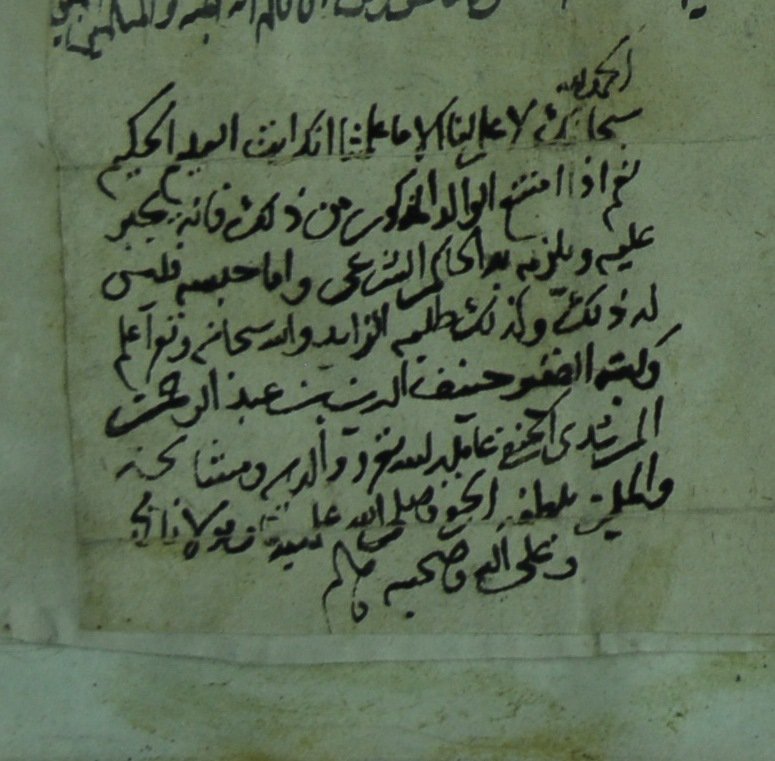 الحمد لله
سبحانك لا علم لنا الا ما علمتنا انك انت العليم الحكيم
نعم اذا امتنع الوالد المذكور من ذلك فانه يجبر
عليه ويلزمه به الحاكم الشرعي واما حبسه فليس
له ذلك وكذلك طلبه الزايد والله سبحانه وتعا اعلم
وكتبه الفقير حنيف الدين بن عبد الرحمن
المرشدي الحنفي عامله الله تعا ووالديه ومشايخه
والمسلمين بلطفه الخفي وصلى الله على سيدنا ومولانا محمد
وعلى اله وصحبه وسلم